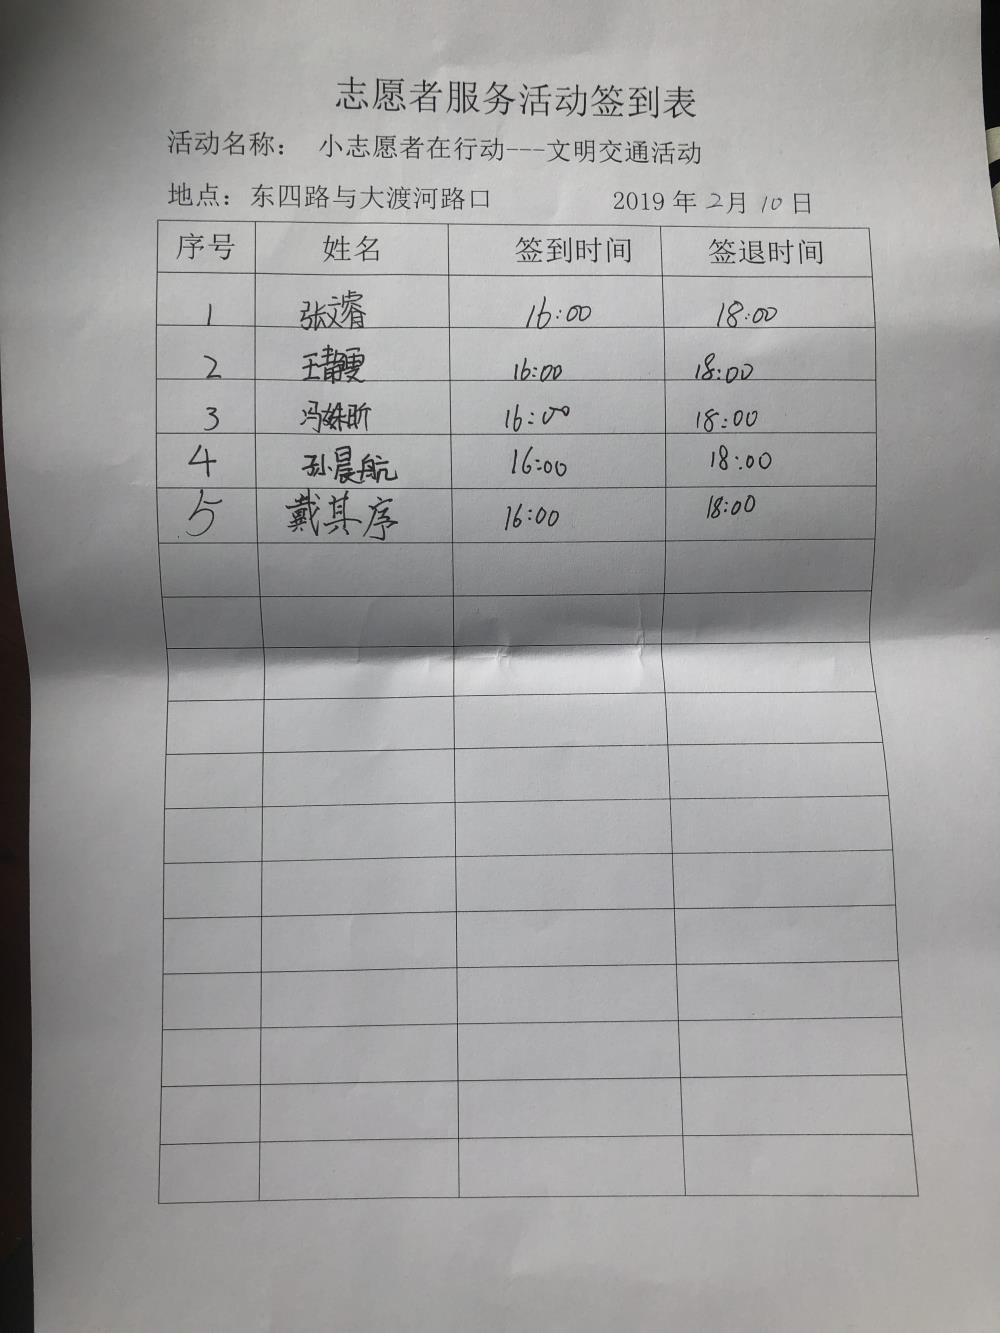 志愿者服务活动签到表
活动名称： 小志愿者在行动---文明交通活动
地点：东四路与大渡河路口 2019 年 2月 10 日
序号 姓名 签到时间 签退时间
1 张文睿 16:00 18:00
2 王静雯 16:00 18:00
3 冯姝昕 16:00 18:00
4 孙晨航 16:00 18:00
5 戴其序 16:00 18:00